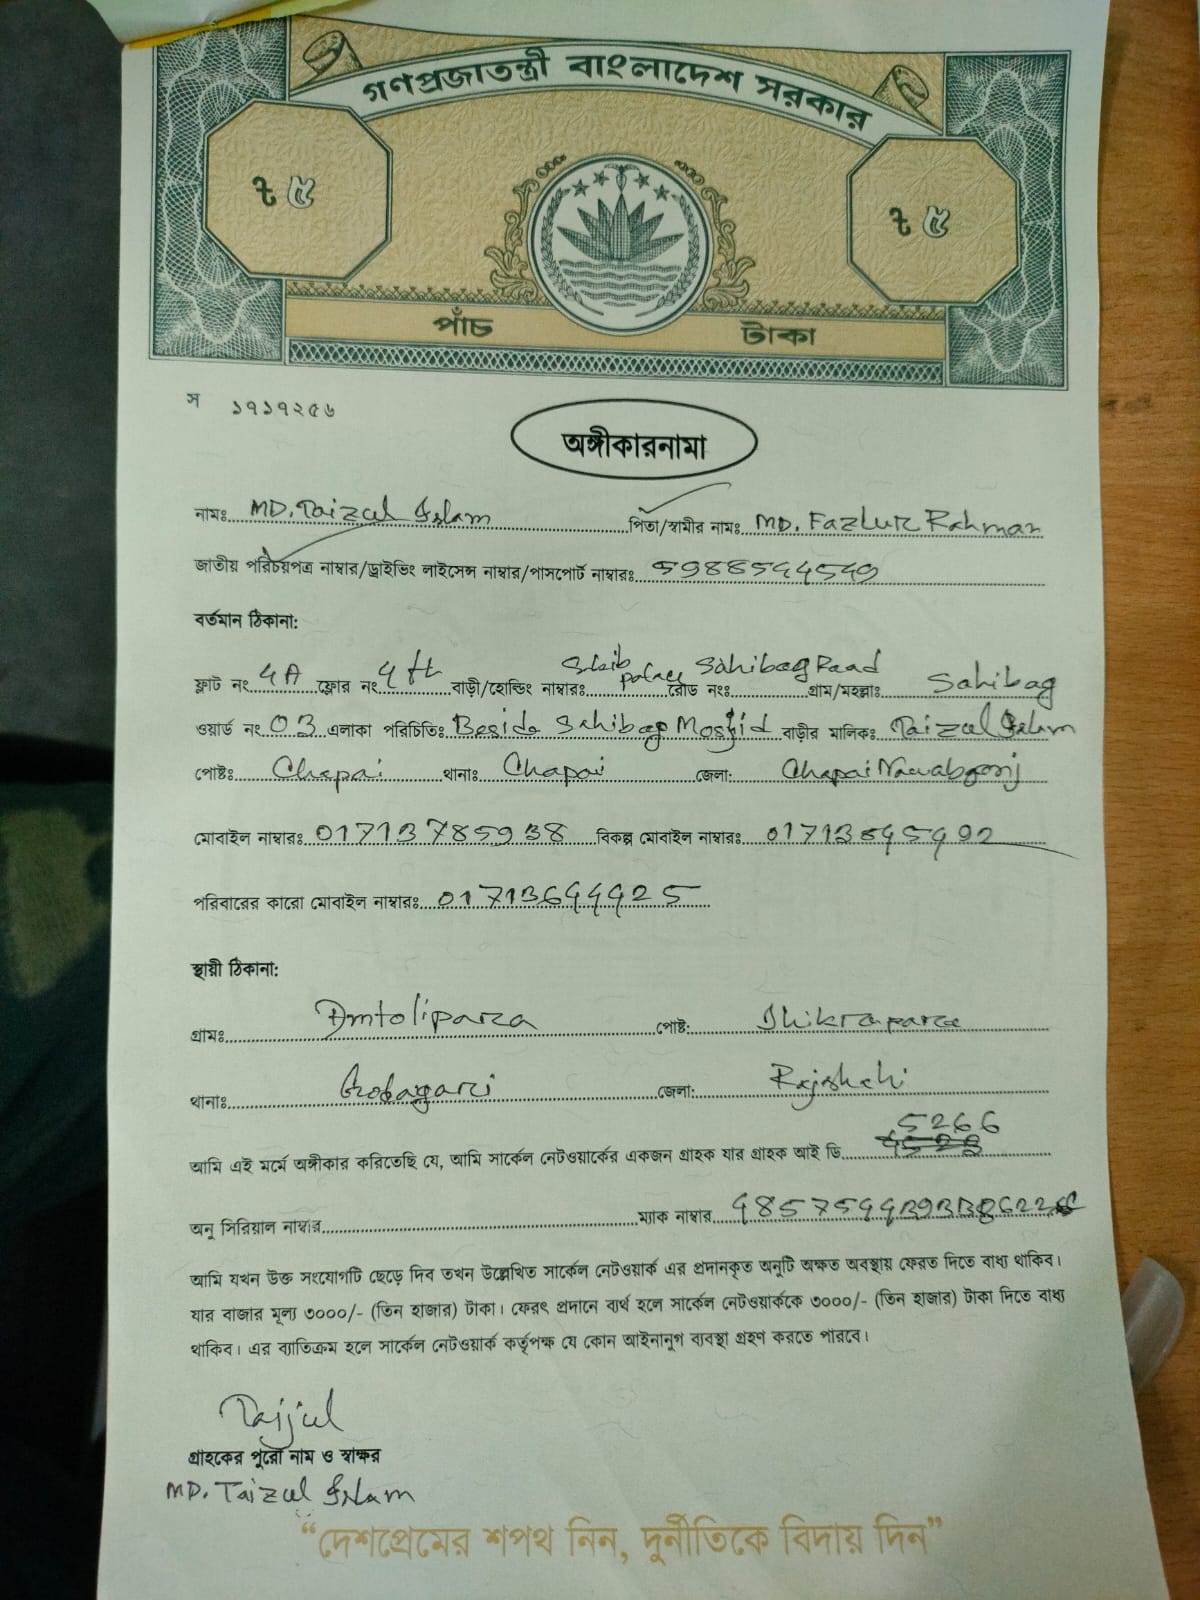 গণপ্রজাতন্ত্রী বাংলাদেশ সরকার
৳ ৫
৳ ৫
পাঁচ টাকা
স ১৭১৭২৫৬
অঙ্গীকারনামা
নামঃ MD. Taizul Islam পিতা/স্বামীর নামঃ MD. Fazlur Rahman
জাতীয় পরিচয়পত্র নাম্বার/ড্রাইভিং লাইসেন্স নাম্বার/পাসপোর্ট নাম্বারঃ
বর্তমান ঠিকানা:
ফ্লাট নং 4A ফ্লোর নং 4th বাড়ী/হোল্ডিং নাম্বারঃ palace রোড নংঃ Sahibag Road গ্রাম/মহল্লাঃ Sahibag
ওয়ার্ড নং 03 এলাকা পরিচিতিঃ Beside Sahibag Mosjid বাড়ীর মালিকঃ Taizul Islam
পোষ্টঃ Chapai থানাঃ Chapai জেলা: Chapai Nawabgonj
মোবাইল নাম্বারঃ 01713785938 বিকল্প মোবাইল নাম্বারঃ
পরিবারের কারো মোবাইল নাম্বারঃ
স্থায়ী ঠিকানা:
গ্রামঃ Amtolipara পোষ্ট:
থানাঃ জেলা: Rajshahi
আমি এই মর্মে অঙ্গীকার করিতেছি যে, আমি সার্কেল নেটওয়ার্কের একজন গ্রাহক যার গ্রাহক আই ডি 5266
অনু সিরিয়াল নাম্বার ম্যাক নাম্বার
আমি যখন উক্ত সংযোগটি ছেড়ে দিব তখন উল্লেখিত সার্কেল নেটওয়ার্ক এর প্রদানকৃত অনুটি অক্ষত অবস্থায় ফেরত দিতে বাধ্য থাকিব।
যার বাজার মূল্য ৩০০০/- (তিন হাজার) টাকা। ফেরৎ প্রদানে ব্যর্থ হলে সার্কেল নেটওয়ার্ককে ৩০০০/- (তিন হাজার) টাকা দিতে বাধ্য
থাকিব। এর ব্যতিক্রম হলে সার্কেল নেটওয়ার্ক কর্তৃপক্ষ যে কোন আইনানুগ ব্যবস্থা গ্রহণ করতে পারবে।
গ্রাহকের পুরো নাম ও স্বাক্ষর
MD. Taizul Islam
“দেশপ্রেমের শপথ নিন, দুর্নীতিকে বিদায় দিন”